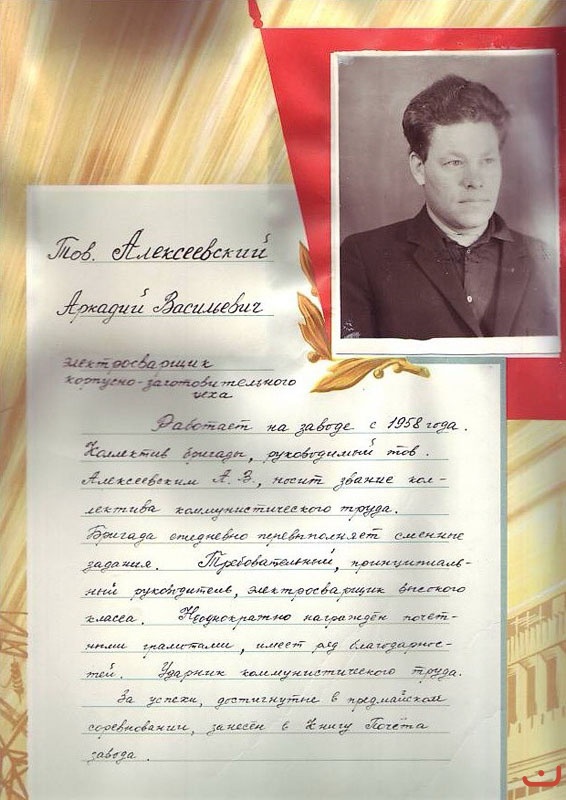 Тов. Алексеевский
Аркадий Васильевич
электросварщик
корпусно-заготовительного
цеха
Работает на заводе с 1958 года.
Коллектив бригады, руководимый тов.
Алексеевским А.В., носит звание кол-
лектива коммунистического труда.
Бригада ежедневно перевыполняет сменные
задания. Требовательный, принципиаль-
ный руководитель, электросварщик высокого
класса. Неоднократно награждён почёт-
ными грамотами, имеет ряд благодарнос-
тей. Ударник коммунистического труда.
За успехи, достигнутые в предмайском
соревновании, занесён в Книгу Почёта
завода.